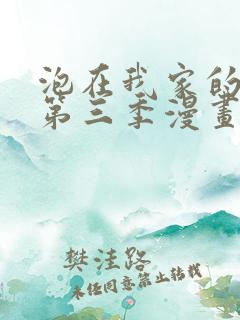 泡在我家的
第三季漫畫
樊洼路
未经同意禁止转载